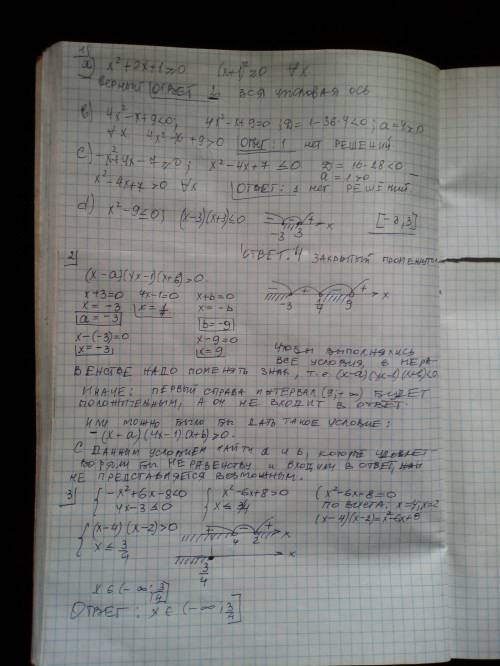 1)
a) x²+2x+1≥0 (x+1)²≥0 ∀x
верный ответ 2 вся числовая ось
b) 4x²-x+9<0; 4x²-x+9=0; D=1-36·4<0; a=4>0
∀x 4x²-x+9>0 Ответ: 1 нет решений
c) -x²+4x-7≥0; x²-4x+7≤0 D=16-28<0
a=1>0
x²-4x+7>0 ∀x Ответ: 1 нет решений
d) x²-9≤0; (x-3)(x+3)≤0 -3 3 x [-3,3]
Ответ: 4 закрытый промежуток
2)
(x-a)(4x-1)(x+b)>0
x+3=0 4x-1=0 x+b=0
x=-3 x=1/4 x=-b
a=-3 b=-9
x-(-3)=0 x-9=0
x=-3 x=9
-3 1/4 9 x
чтобы выполнялись
все условия, в нера-
венстве надо поменять знак, т.е (x-a)(4x-1)(x+b)<0.
Иначе: первый справа интервал (9;+∞) будет
положительным, а он не входит в ответ
Или можно было бы дать такое условие:
-(x-a)(4x-1)(x+b)>0.
С данным условием найти a и b, которые удовлет-
воряли бы неравенству и входили в ответ,
не представляется возможным.
3) { -x²+6x-8<0 { x²-6x+8>0 (x²-6x+8=0
4x-3≤0 x≤3/4 по Виета: x=4, x=2
(x-4)(x-2)=x²-6x+8
{ (x-4)(x-2)>0 4 2 x
x≤3/4
3/4 x
x∈(-∞;3/4]
Ответ: x∈(-∞;3/4]